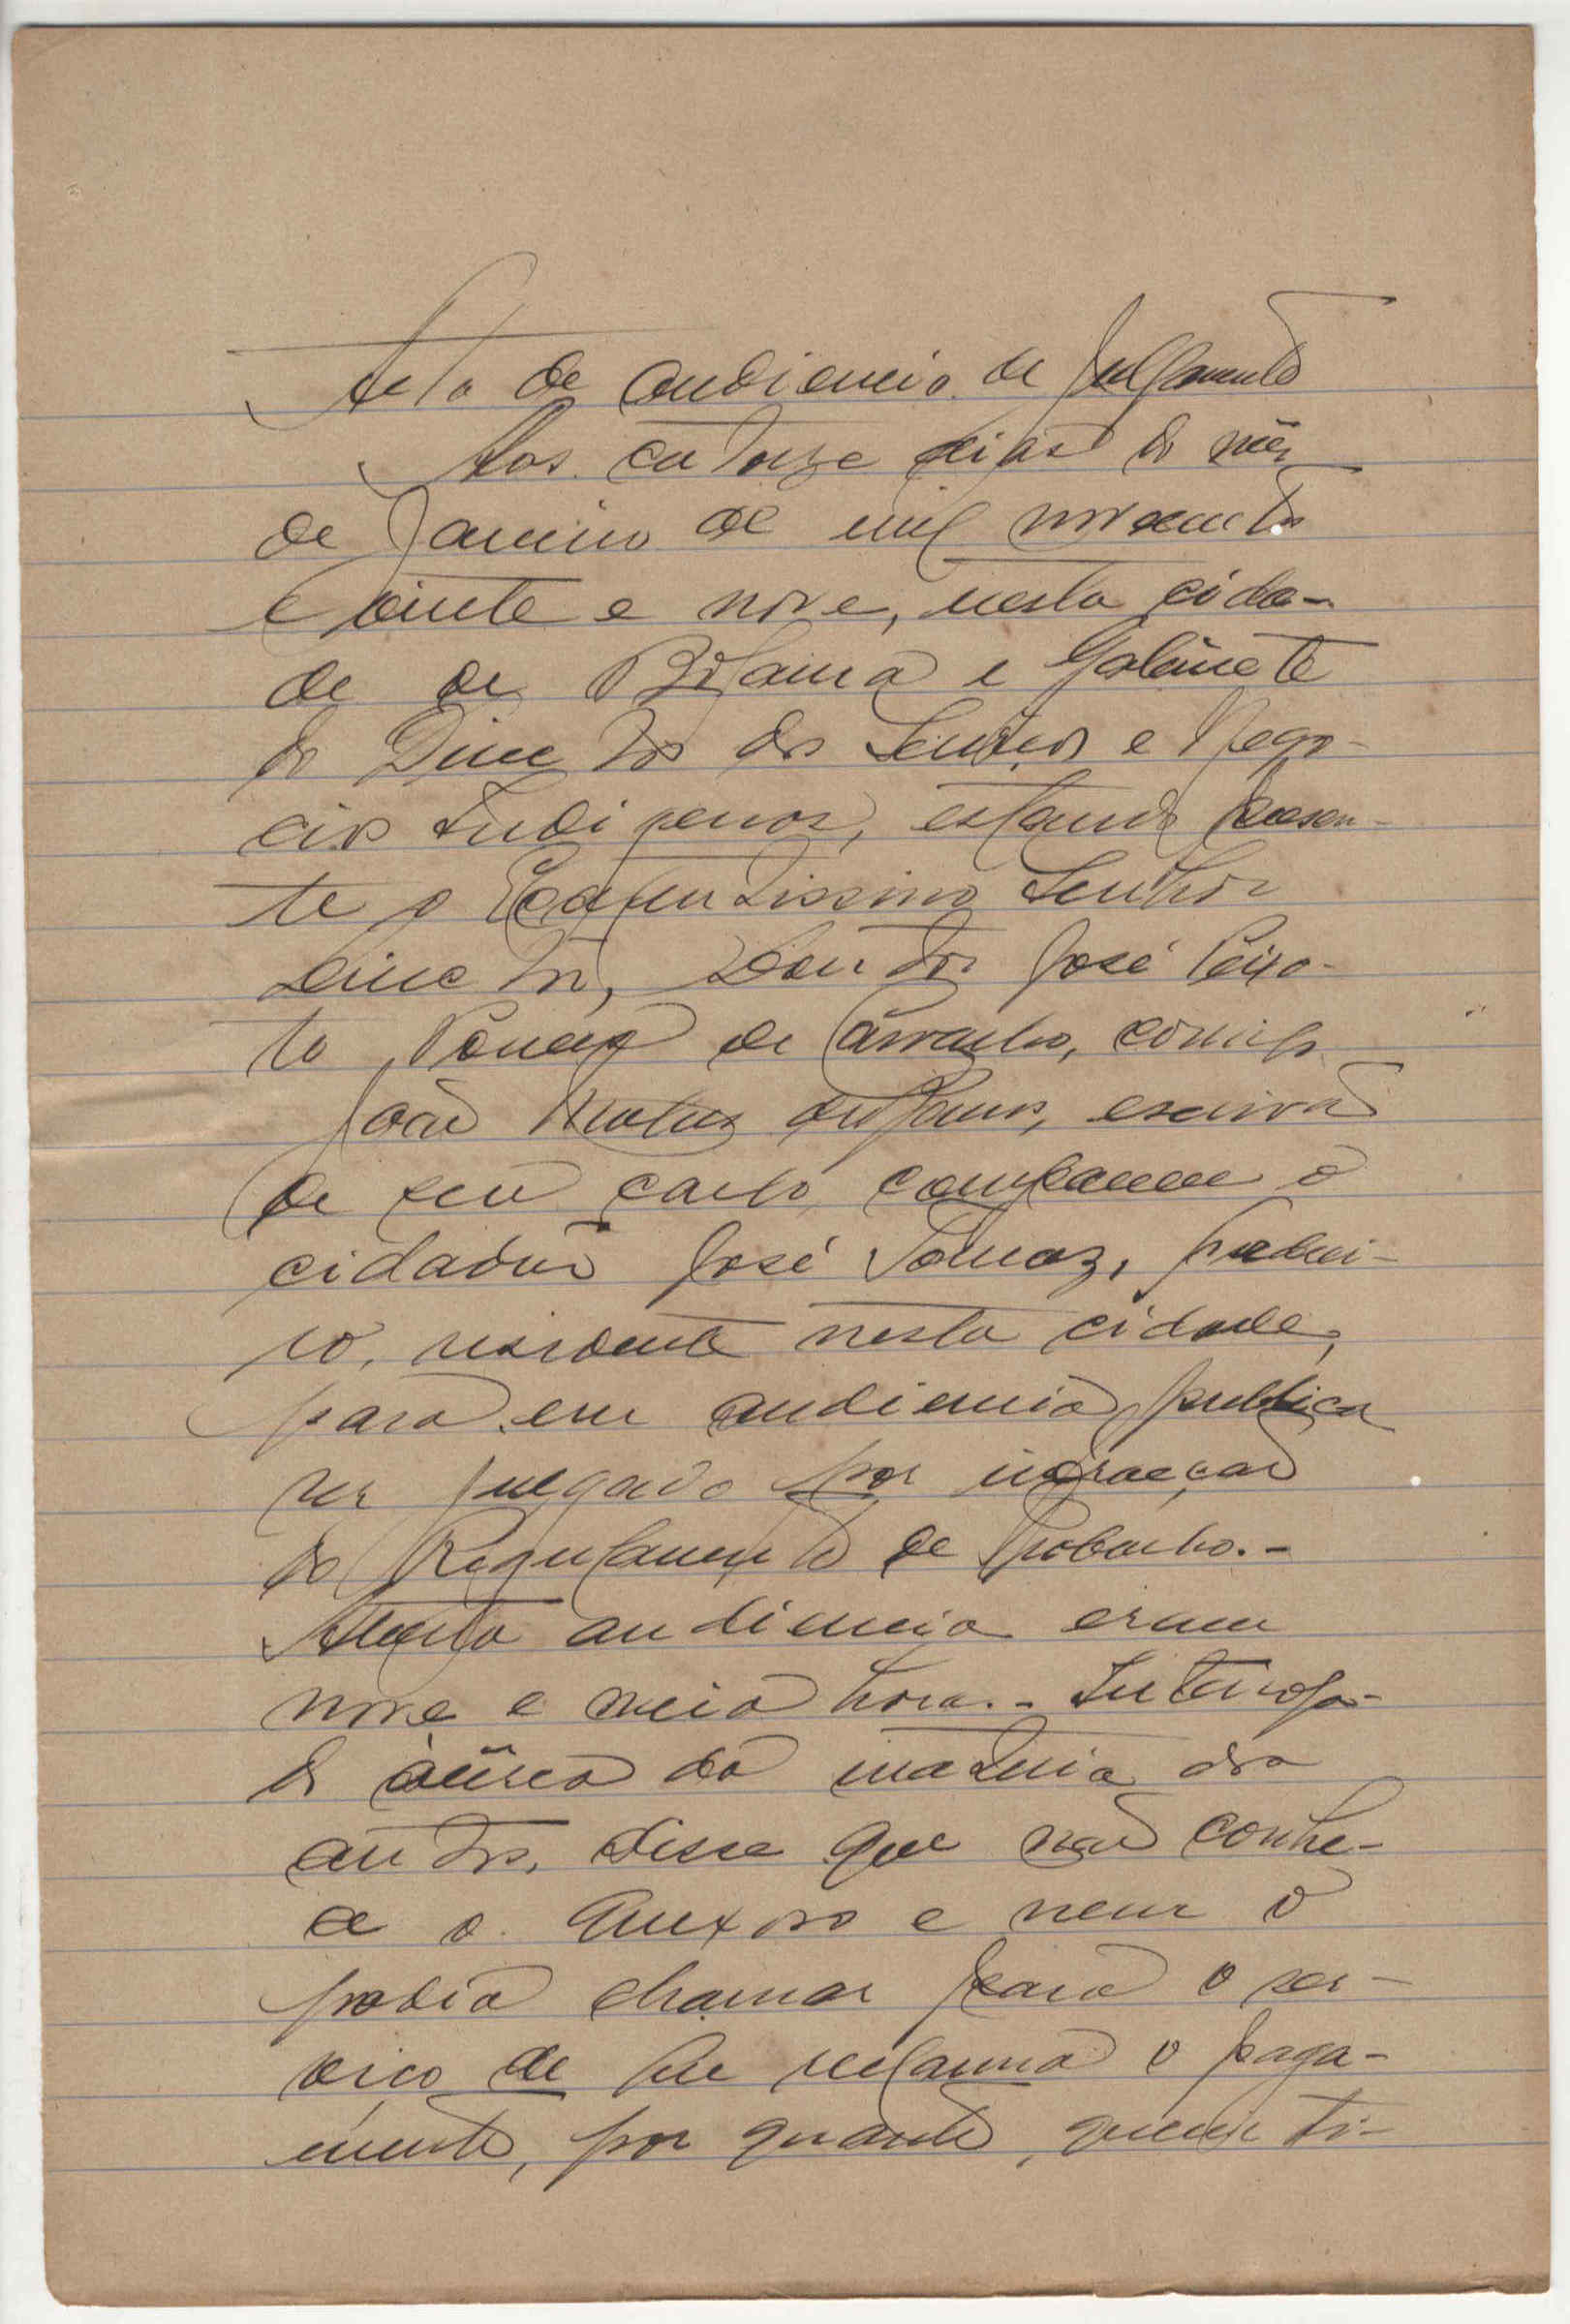 Acta de audiencia de Julgamento
Aos catorze dias do mês
de Janeiro de mil novecentos
e vinte e nove, nesta cida-
de de Bolama e Gabinete
do Director dos Serviços e Nego-
cios Indigenas, estando presen-
te o Excelentissimo Senhor
Director, Doutor José Peixo-
to Ponces de Carvalho, comigo
João Matos, escrivão
de seu cargo, compareceu o
cidadão José Tomaz, pedrei-
ro, residente nesta cidade,
para em audiencia publica
ser julgado por infracção
do Regulamento de Trabalho.-
Aberta audiencia eram
nove e meia hora.- Interroga-
do àcêrca da materia dos
autos, disse que não conhe-
ce o queixoso e nem o
podia chamar para o ser-
viço de que reclama o paga-
mento, por quanto, quem ti-